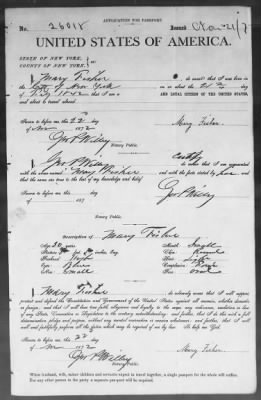 APPLICATION FOR PASSPORT.
No. 26018 Issued Nov 21/7
UNITED STATES OF AMERICA.
STATE OF NEW YORK,
COUNTY OF NEW YORK,
I, Mary Fisher do swear that I was born in
the City of New York on or about the day
of 1852 that I am a AND LOYAL CITIZEN OF THE UNITED STATES,
and about to travel abroad.
Sworn to before me this 22 day Mary Fisher.
of Nov 1872
Geo P Willey
Notary Public.
I, Geo P Willey Certify that I am acquainted
with the above named Mary Fisher and with the facts stated by her and
that the same are true to the best of my knowledge and belief.
Sworn to before me this day Geo P Willey
of 187
Notary Public.
Description of Mary Fisher
Age 20 years Mouth
Stature feet inches, Eng. Chin Round
Forehead High Hair
Eyes Complexion
Nose Small Face Oval
I, Mary Fisher do solemnly swear that I will support,
protect and defend the Constitution and Government of the United States against all enemies, whether domestic
or foreign; and that I will bear true faith, allegiance and loyalty to the same, any ordinance, resolution or law
of any State, Convention or Legislature to the contrary notwithstanding; and further, that I do this with a full
determination, pledge and purpose, without any mental reservation or evasion whatsoever; and further, that I will
well and faithfully perform all the duties which may be required of me by law. So help me God.
Sworn to before me this 22 day
of Nov 1872 Mary Fisher.
Geo P Willey
Notary Public.
When husband, wife, minor children and servants expect to travel together, a single passport for the whole will suffice.
For any other person in the party a separate passport will be required.